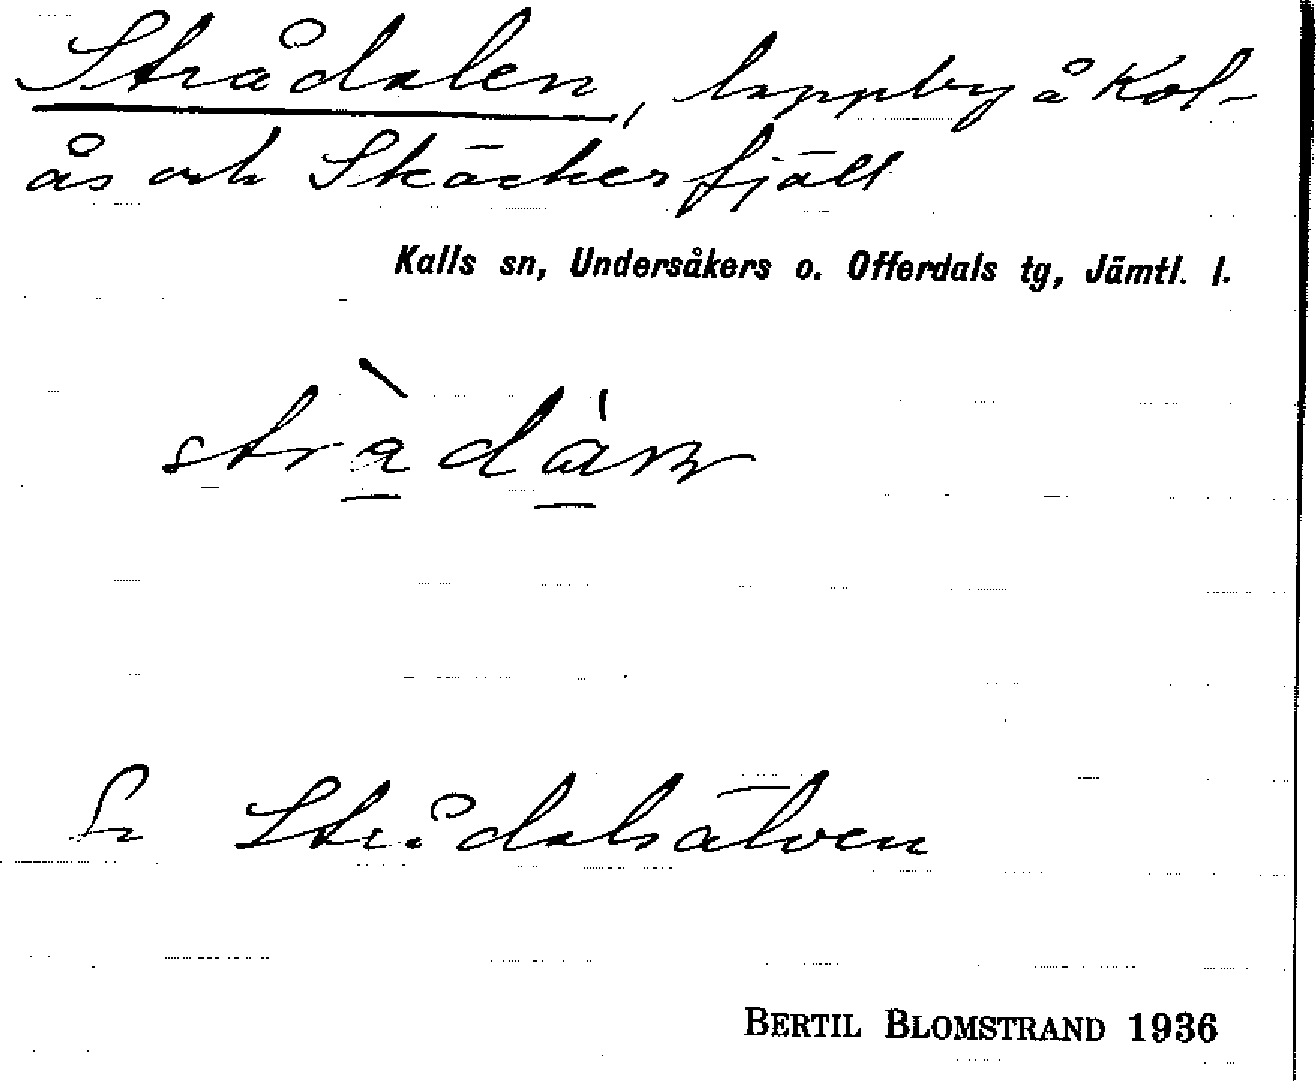 Strådalen, lappby å Kol-
ås och Skäckerfjäll
Kalls sn, Undersåkers o. Offerdals tg, Jämtl. l.
Se Strådalsälven
BERTIL BLOMSTRAND 1936